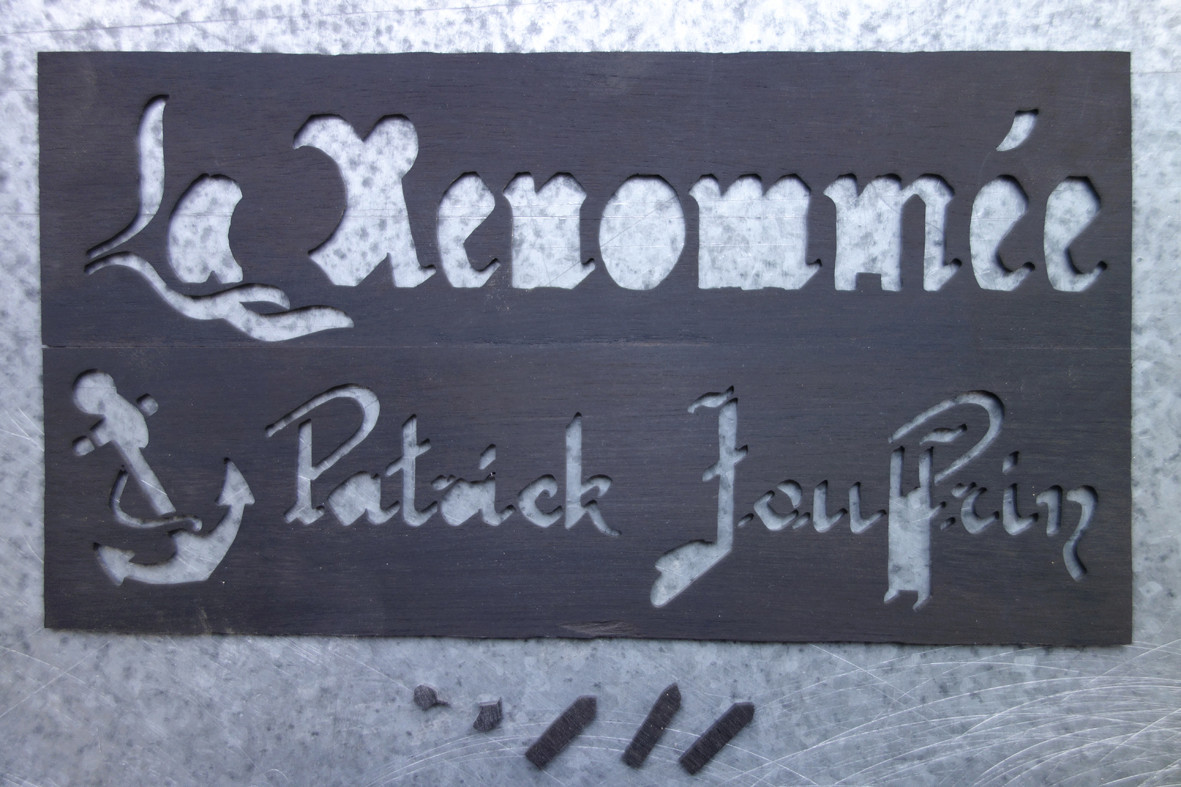 La Renommée
Patrick Jouffrin